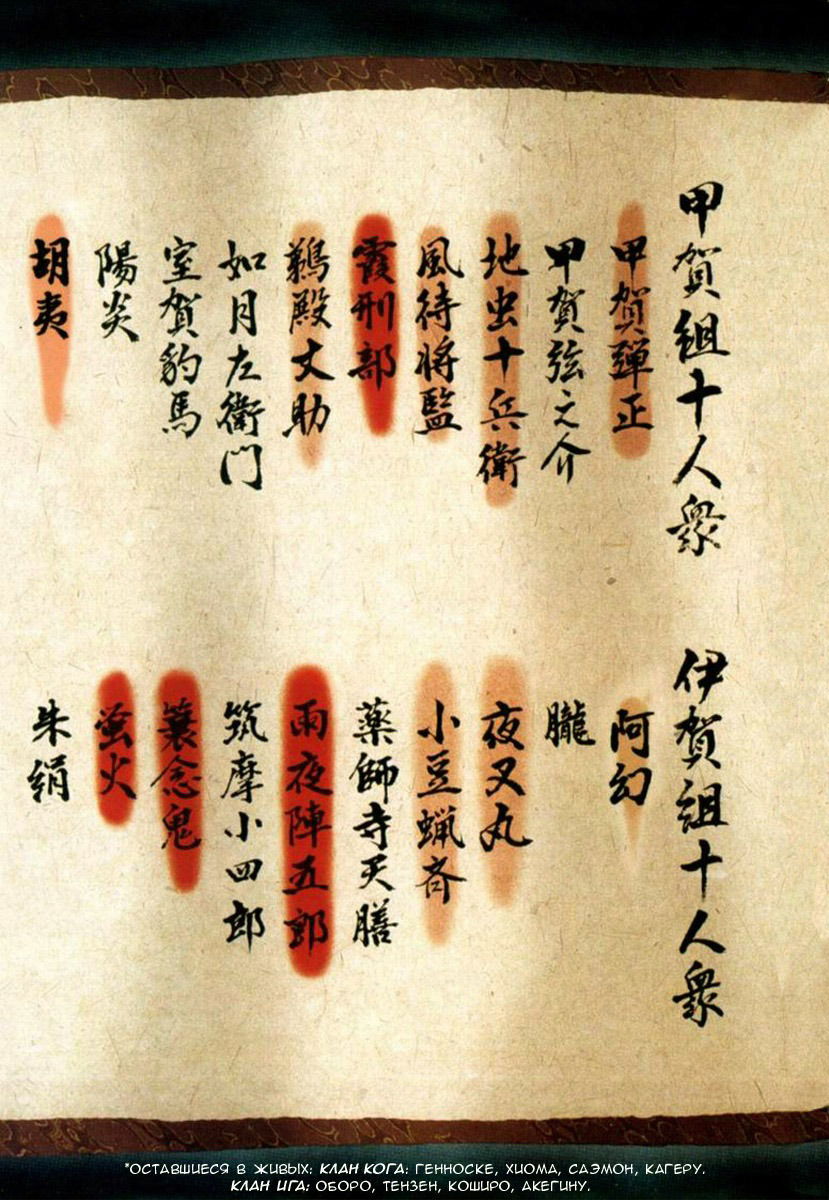 甲賀組十人衆
甲賀弾正
甲賀弦之介
地虫十兵衛
風待将監
霞刑部
鵜殿丈助
如月左衛門
室賀豹馬
陽炎
胡夷
伊賀組十人衆
阿幻
朧
夜叉丸
小豆蝋斉
薬師寺天膳
雨夜陣五郎
筑摩小四郎
蓑念鬼
蛍火
朱絹
*ОСТАВШИЕСЯ В ЖИВЫХ: КЛАН КОГА: ГЕННОСКЕ, ХИОМА, САЭМОН, КАГЕРУ.
КЛАН ИГА: ОБОРО, ТЕНЗЕН, КОШИРО, АКЕГИНУ.